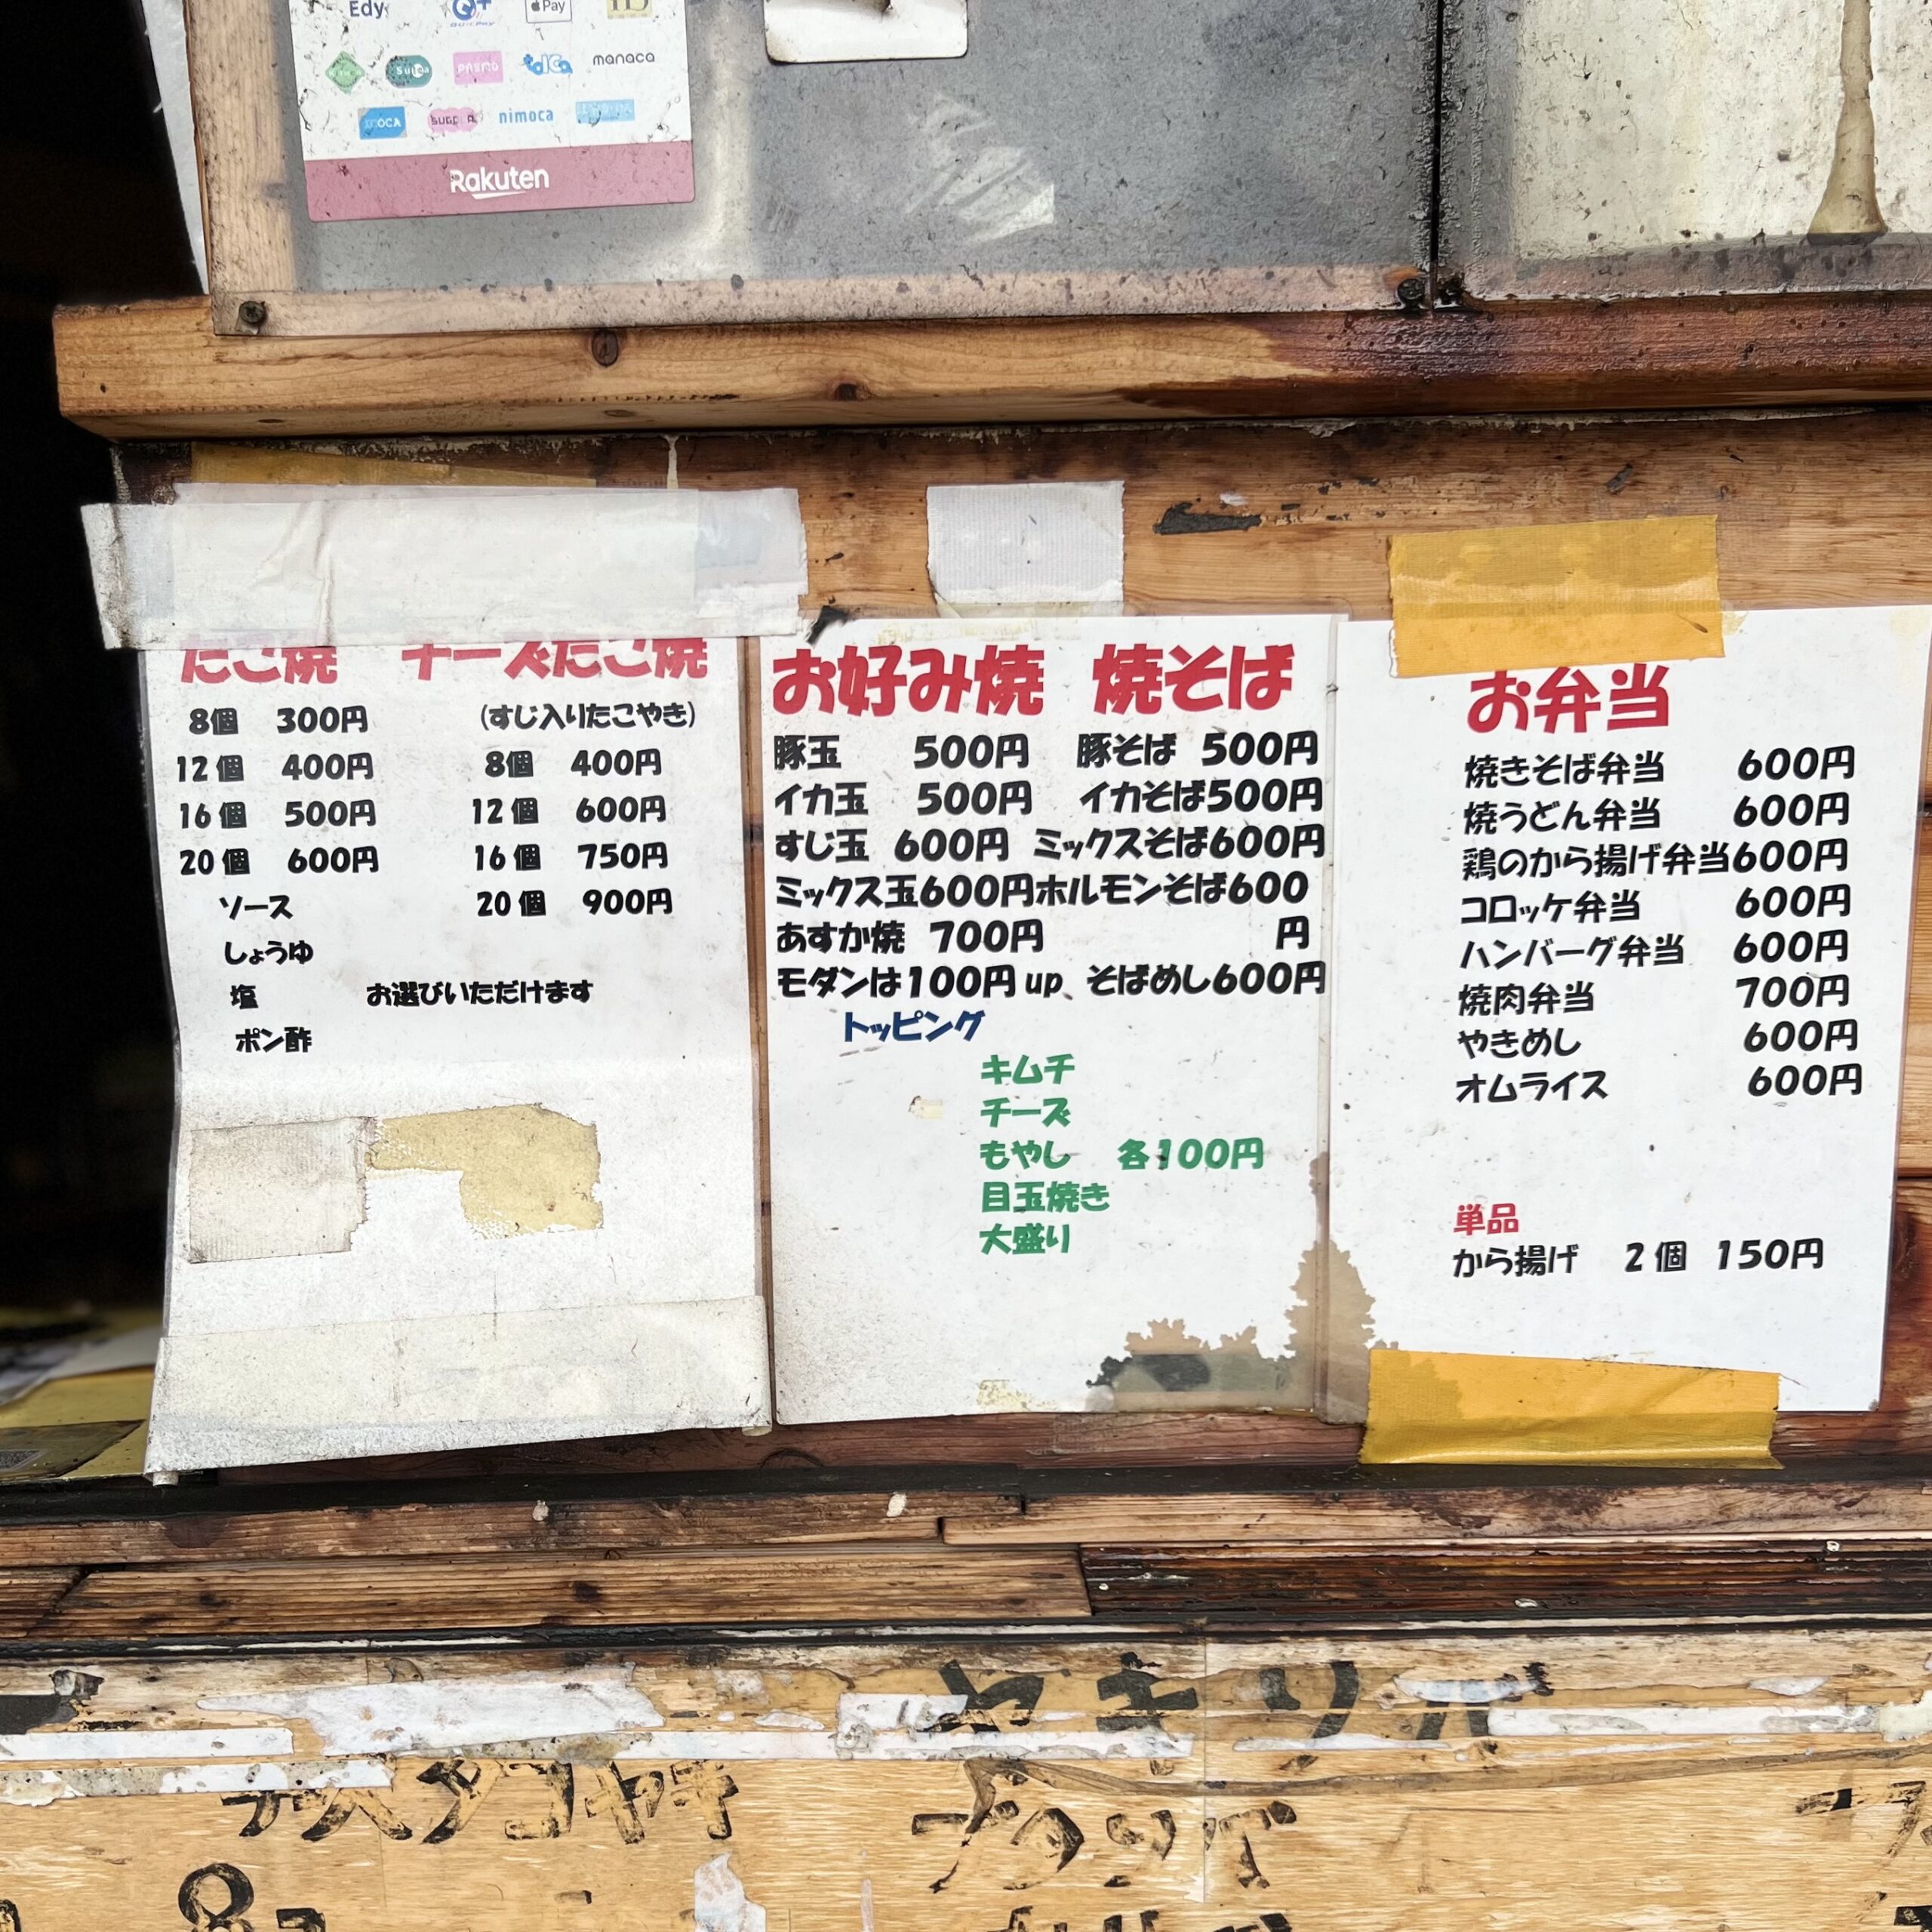 Edy QUICPay Pay iD
Suica PASMO toica manaca
ICOCA SUGOCA nimoca
Rakuten
たこ焼 チーズたこ焼
8個 300円 (すじ入りたこやき)
12個 400円 8個 400円
16個 500円 12個 600円
20個 600円 16個 750円
ソース 20個 900円
しょうゆ
塩 お選びいただけます
ポン酢
お好み焼 焼そば
豚玉 500円 豚そば 500円
イカ玉 500円 イカそば500円
すじ玉 600円 ミックスそば600円
ミックス玉600円ホルモンそば600
あすか焼 700円 円
モダンは100円up、そばめし600円
トッピング
キムチ
チーズ
もやし 各100円
目玉焼き
大盛り
お弁当
焼きそば弁当 600円
焼うどん弁当 600円
鶏のから揚げ弁当600円
コロッケ弁当 600円
ハンバーグ弁当 600円
焼肉弁当 700円
やきめし 600円
オムライス 600円
単品
から揚げ 2個 150円
ヤキソバ
チーズタコヤキ
8コ